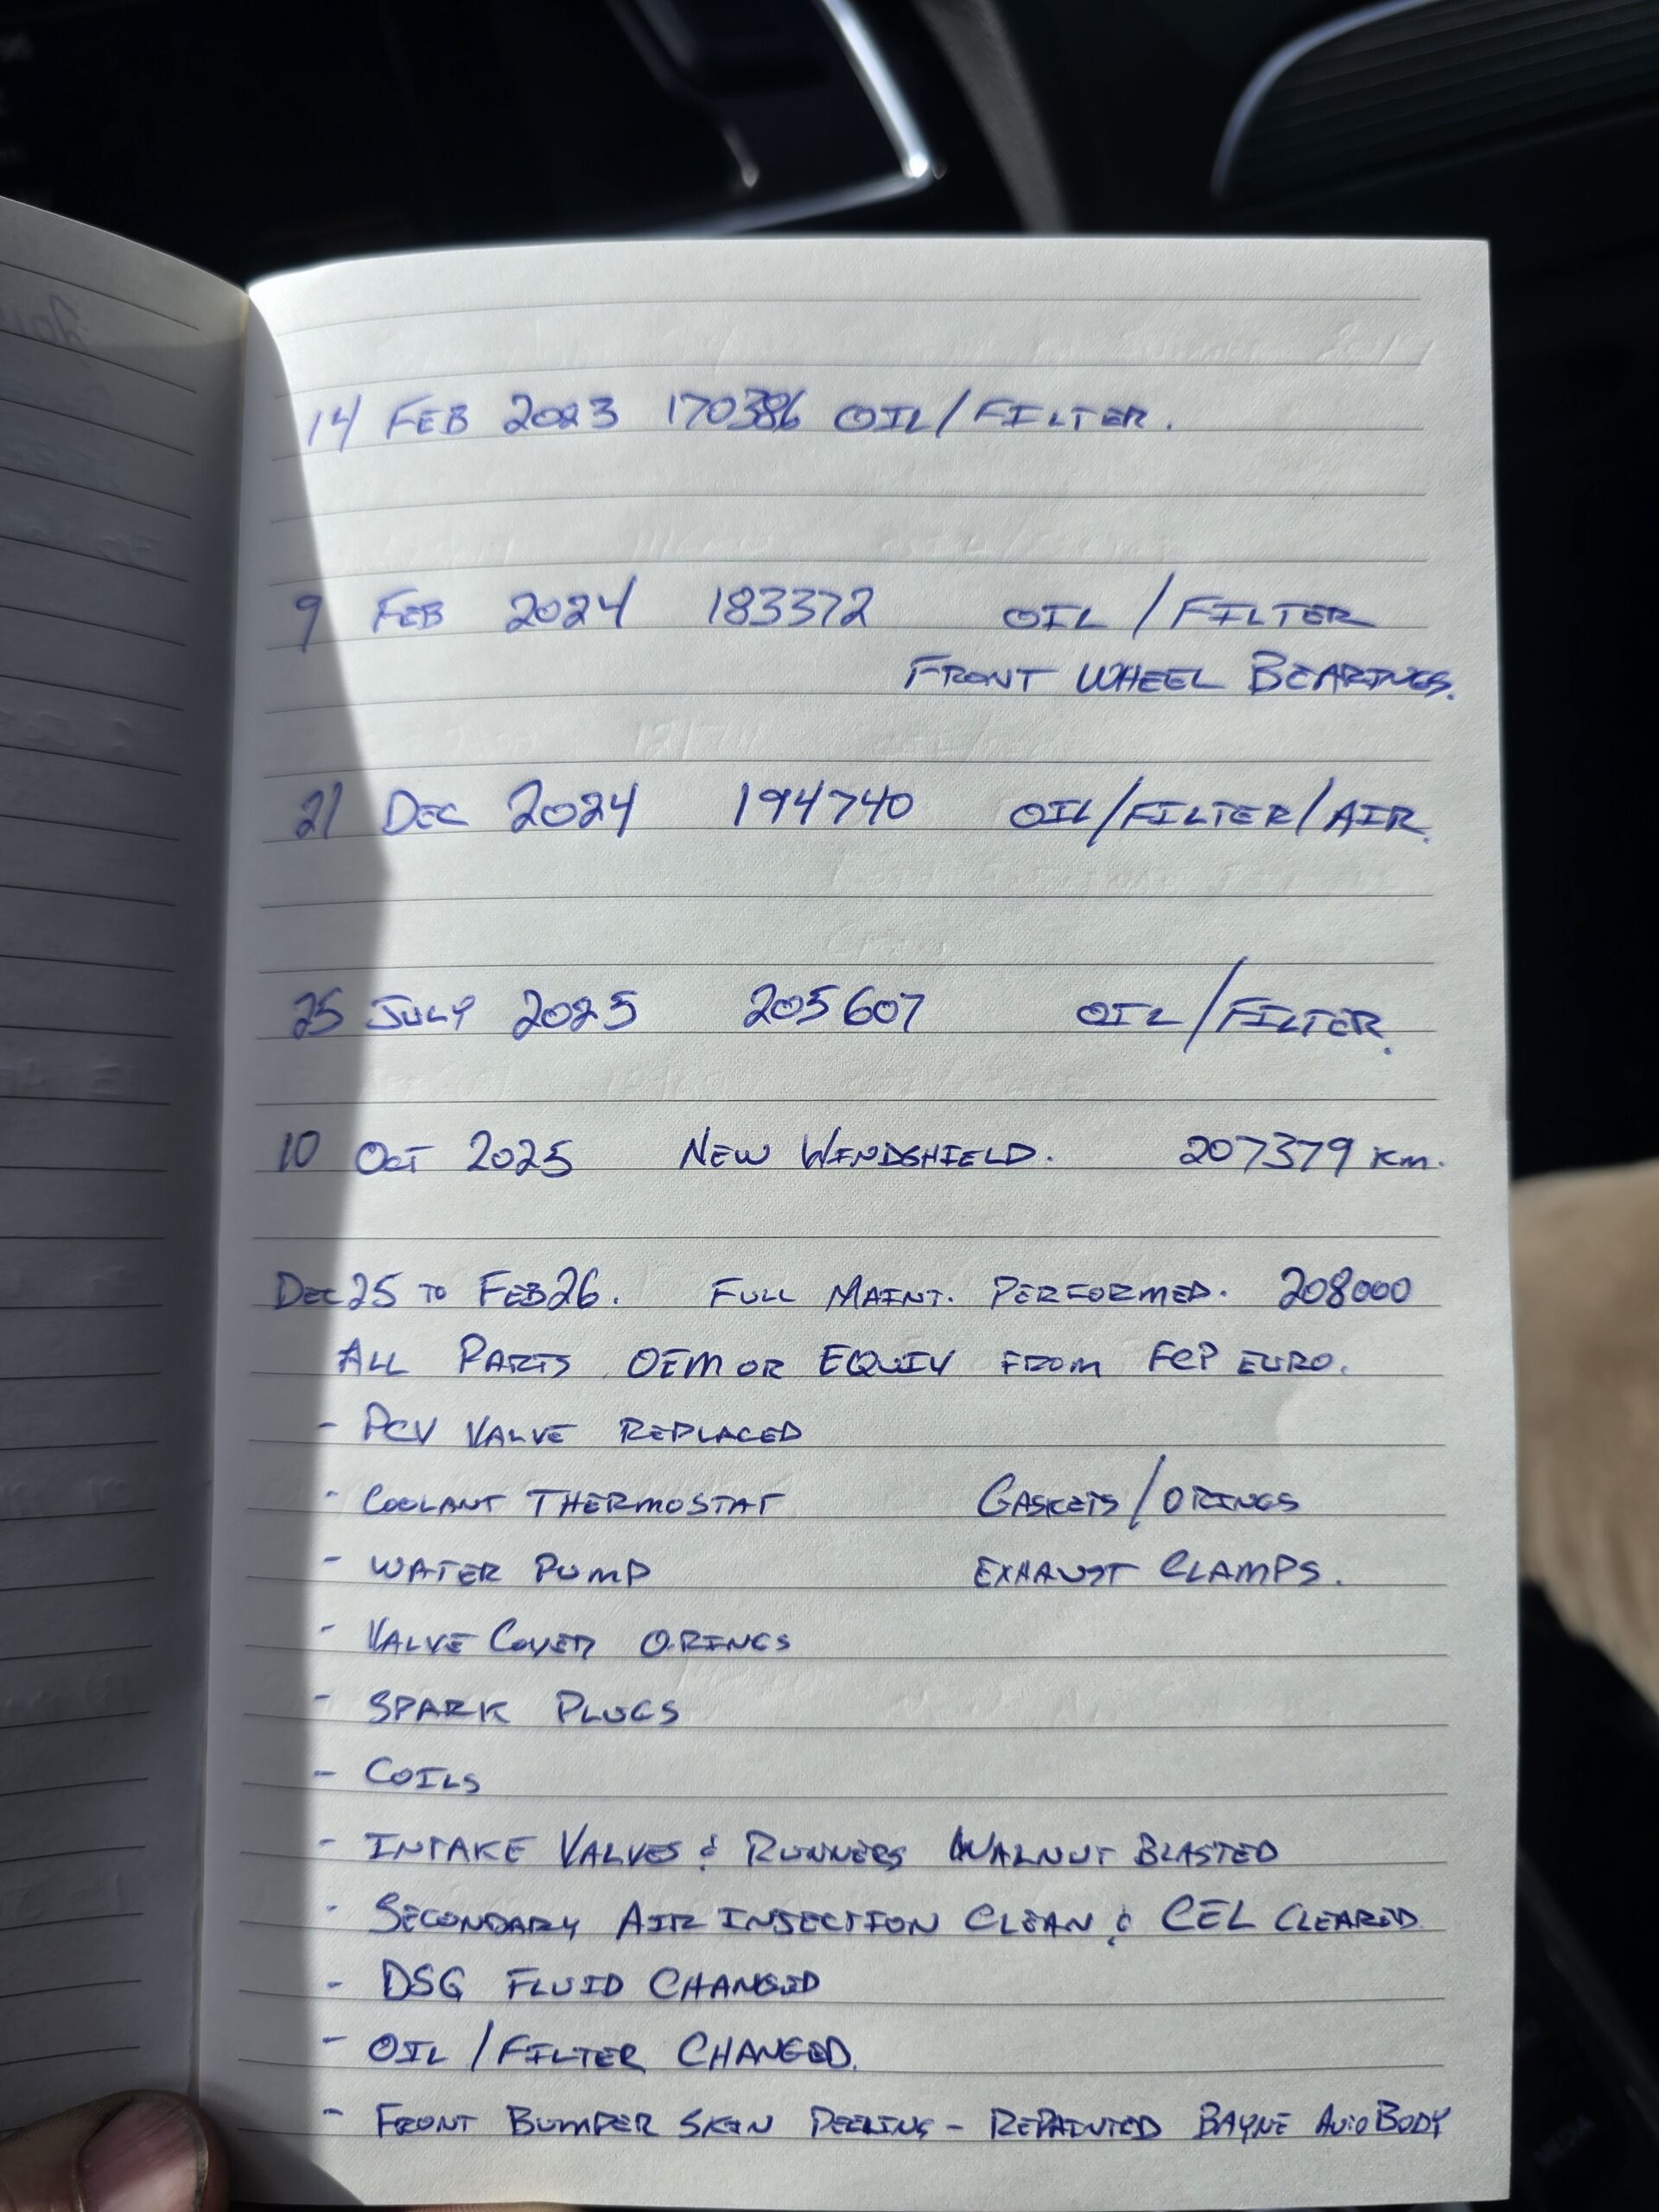 14 FEB 2023 170386 OIL/FILTER.
9 FEB 2024 183372 OIL/FILTER
FRONT WHEEL BEARINGS.
21 DEC 2024 194740 OIL/FILTER/AIR.
25 JULY 2025 205607 OIL/FILTER.
10 OCT 2025 NEW WINDSHIELD. 207379 KM.
DEC 25 TO FEB 26. FULL MAINT. PERFORMED. 208000
ALL PARTS OEM OR EQUIV FROM FCP EURO.
- PCV VALVE REPLACED
- COOLANT THERMOSTAT GASKETS/ORINGS
- WATER PUMP EXHAUST CLAMPS.
- VALVE COVER O-RINGS
- SPARK PLUGS
- COILS
- INTAKE VALVES & RUNNERS WALNUT BLASTED
- SECONDARY AIR INJECTION CLEAN & CEL CLEARED
- DSG FLUID CHANGED
- OIL/FILTER CHANGED.
- FRONT BUMPER SKIN PEELING - REPAINTED BAYNE AUTOBODY